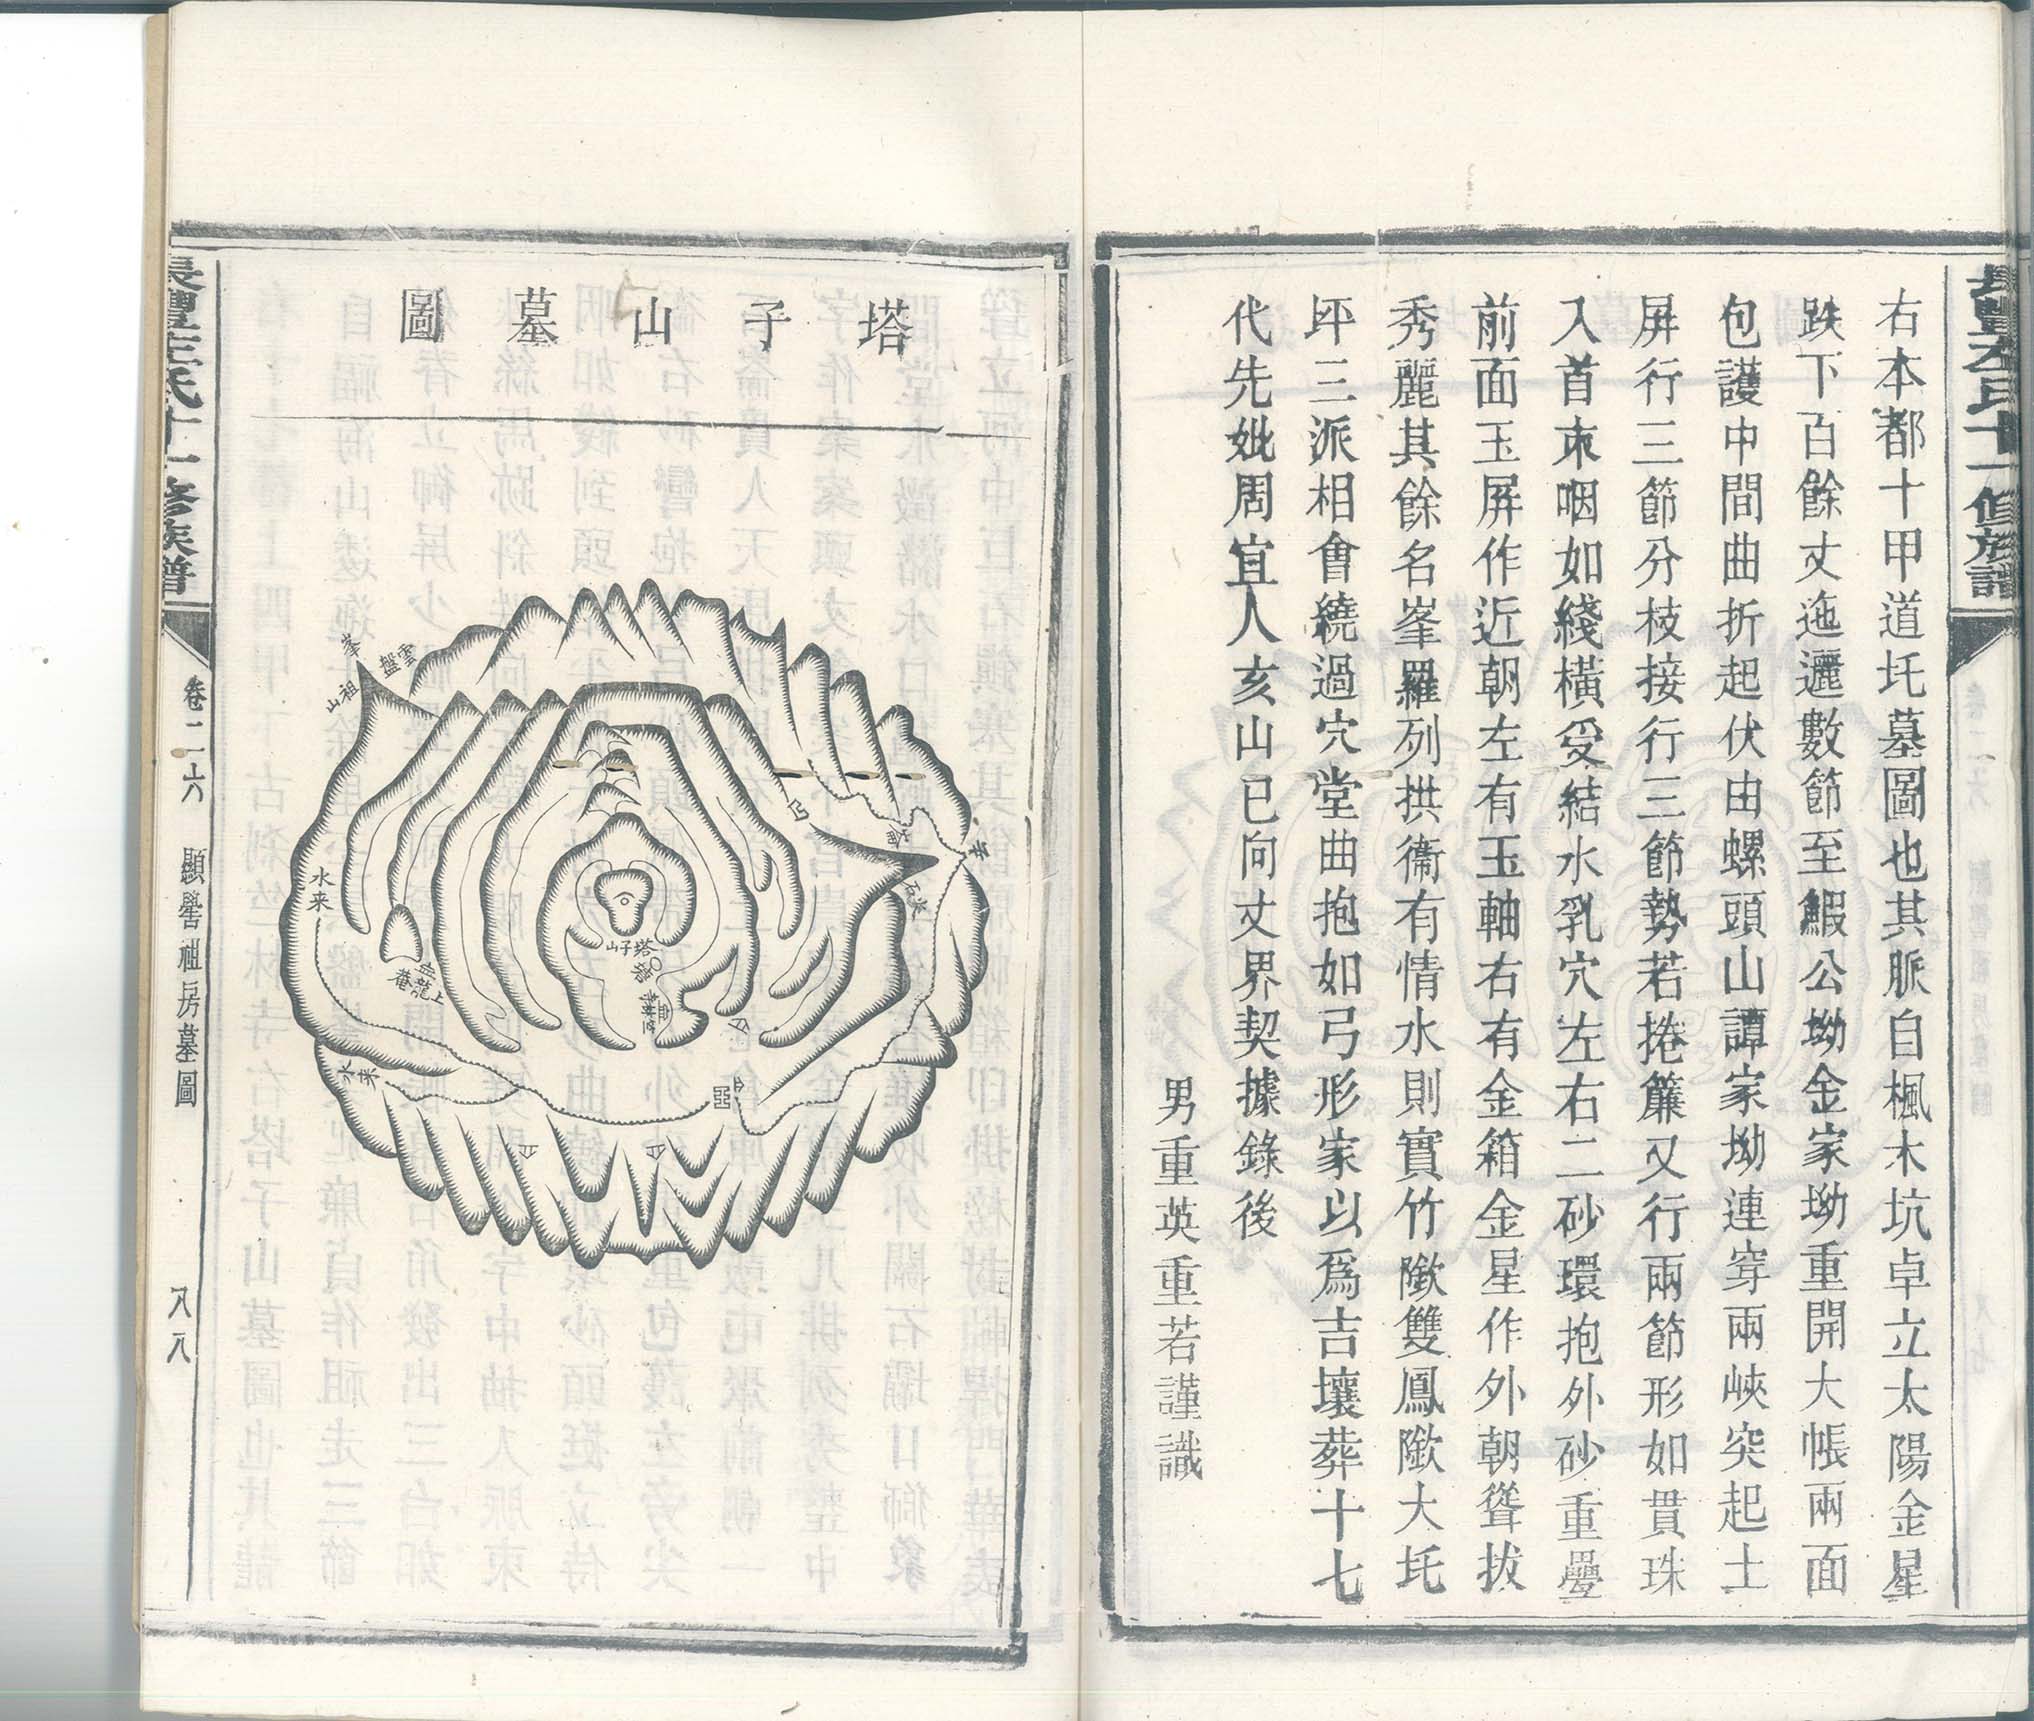 右本都十甲道圫墓圖也其脈自楓木坑卓立太陽金星
跌下百餘丈迤邐數節至鰕公坳金家坳重開大帳兩面
包護中間曲折起伏由螺頭山譚家坳連穿兩峽突起土
屏行三節分枝接行三節勢若捲簾又行兩節形如貫珠
入首束咽如綫橫受結水乳穴左右二砂環抱外砂重疊
前面玉屏作近朝左有玉軸右有金箱金星作外朝聳拔
秀麗其餘名峯羅列拱衞有情水則實竹歘雙鳳歘大圫
坪三派相會繞過穴堂曲抱如弓形家以爲吉壤葬十七
代先妣周宜人亥山巳向丈界契據錄後
男重英重若謹識
塔子山墓圖
雲盤峯
祖山
水来
水来
塔子山
上龍庵
卷二六
顯譽祖房墓圖
八八